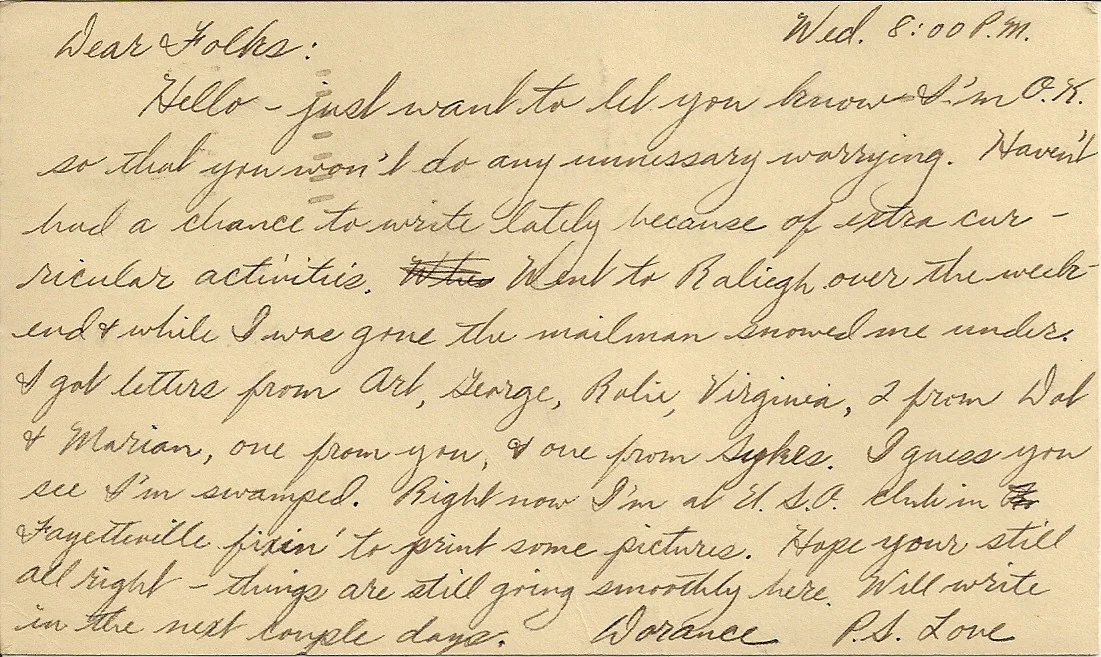 Wed. 8:00 P.M.
Dear Folks:
Hello - just want to let you know I'm O.K.
so that you won't do any unnessary worrying. Haven't
had a chance to write lately because of extra cur -
ricular activities. Went to Raliegh over the week-
end & while I was gone the mailman snowed me under.
I got letters from Art, George, Rolie, Virginia, 2 from Dot
& Marian, one from you, & one from Sykes. I guess you
see I'm swamped. Right now I'm at U.S.O. club in
Fayetteville fixin' to print some pictures. Hope your still
all right - things are still going smoothly here. Will write
in the next couple days. Dorance P.S. Love